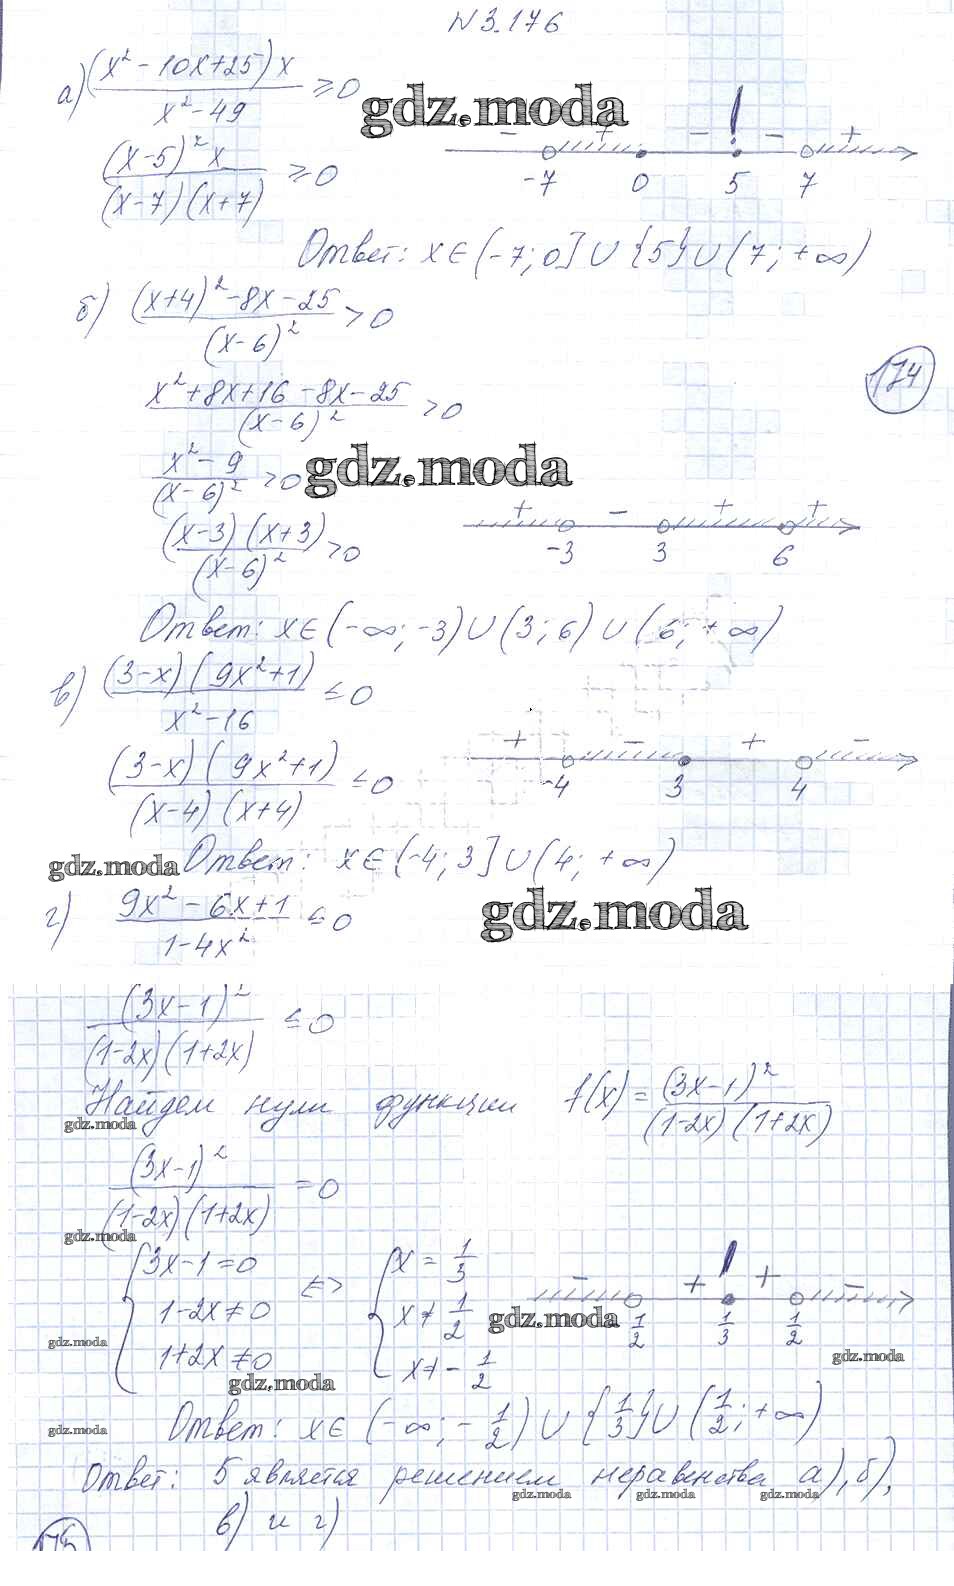 N 3.176
а) (x² - 10x + 25) x / x² - 49 ≥ 0
gdz.moda
(x-5)² x / (x-7)(x+7) ≥ 0
- + - ! - +
-7 0 5 7
Ответ: x ∈ (-7; 0] ∪ {5} ∪ (7; +∞)
б) (x+4)² - 8x - 25 / (x-6)² > 0
174
x² + 8x + 16 - 8x - 25 / (x-6)² > 0
x² - 9 / (x-6)² > 0
gdz.moda
(x-3)(x+3) / (x-6)² > 0
+ - + +
-3 3 6
Ответ: x ∈ (-∞; -3) ∪ (3; 6) ∪ (6; +∞)
в) (3-x)(9x²+1) / x² - 16 ≤ 0
(3-x)(9x²+1) / (x-4)(x+4) ≤ 0
+ - + -
-4 3 4
gdz.moda
Ответ: x ∈ (-4; 3] ∪ (4; +∞)
г) 9x² - 6x + 1 / 1 - 4x² ≤ 0
gdz.moda
(3x-1)² / (1-2x)(1+2x) ≤ 0
Найдем нули функции f(x) = (3x-1)² / (1-2x)(1+2x)
gdz.moda
(3x-1)² / (1-2x)(1+2x) = 0
gdz.moda
{ 3x-1=0 ⇔ { x = 1/3
1-2x≠0 x ≠ 1/2
1+2x≠0 x ≠ -1/2
- + ! + -
1/2 1/3 1/2
gdz.moda
gdz.moda
gdz.moda
gdz.moda
Ответ: x ∈ (-∞; -1/2) ∪ {1/3} ∪ (1/2; +∞)
gdz.moda
Ответ: 5 является решением неравенства а), б),
gdz.moda gdz.moda gdz.moda
в) и г)